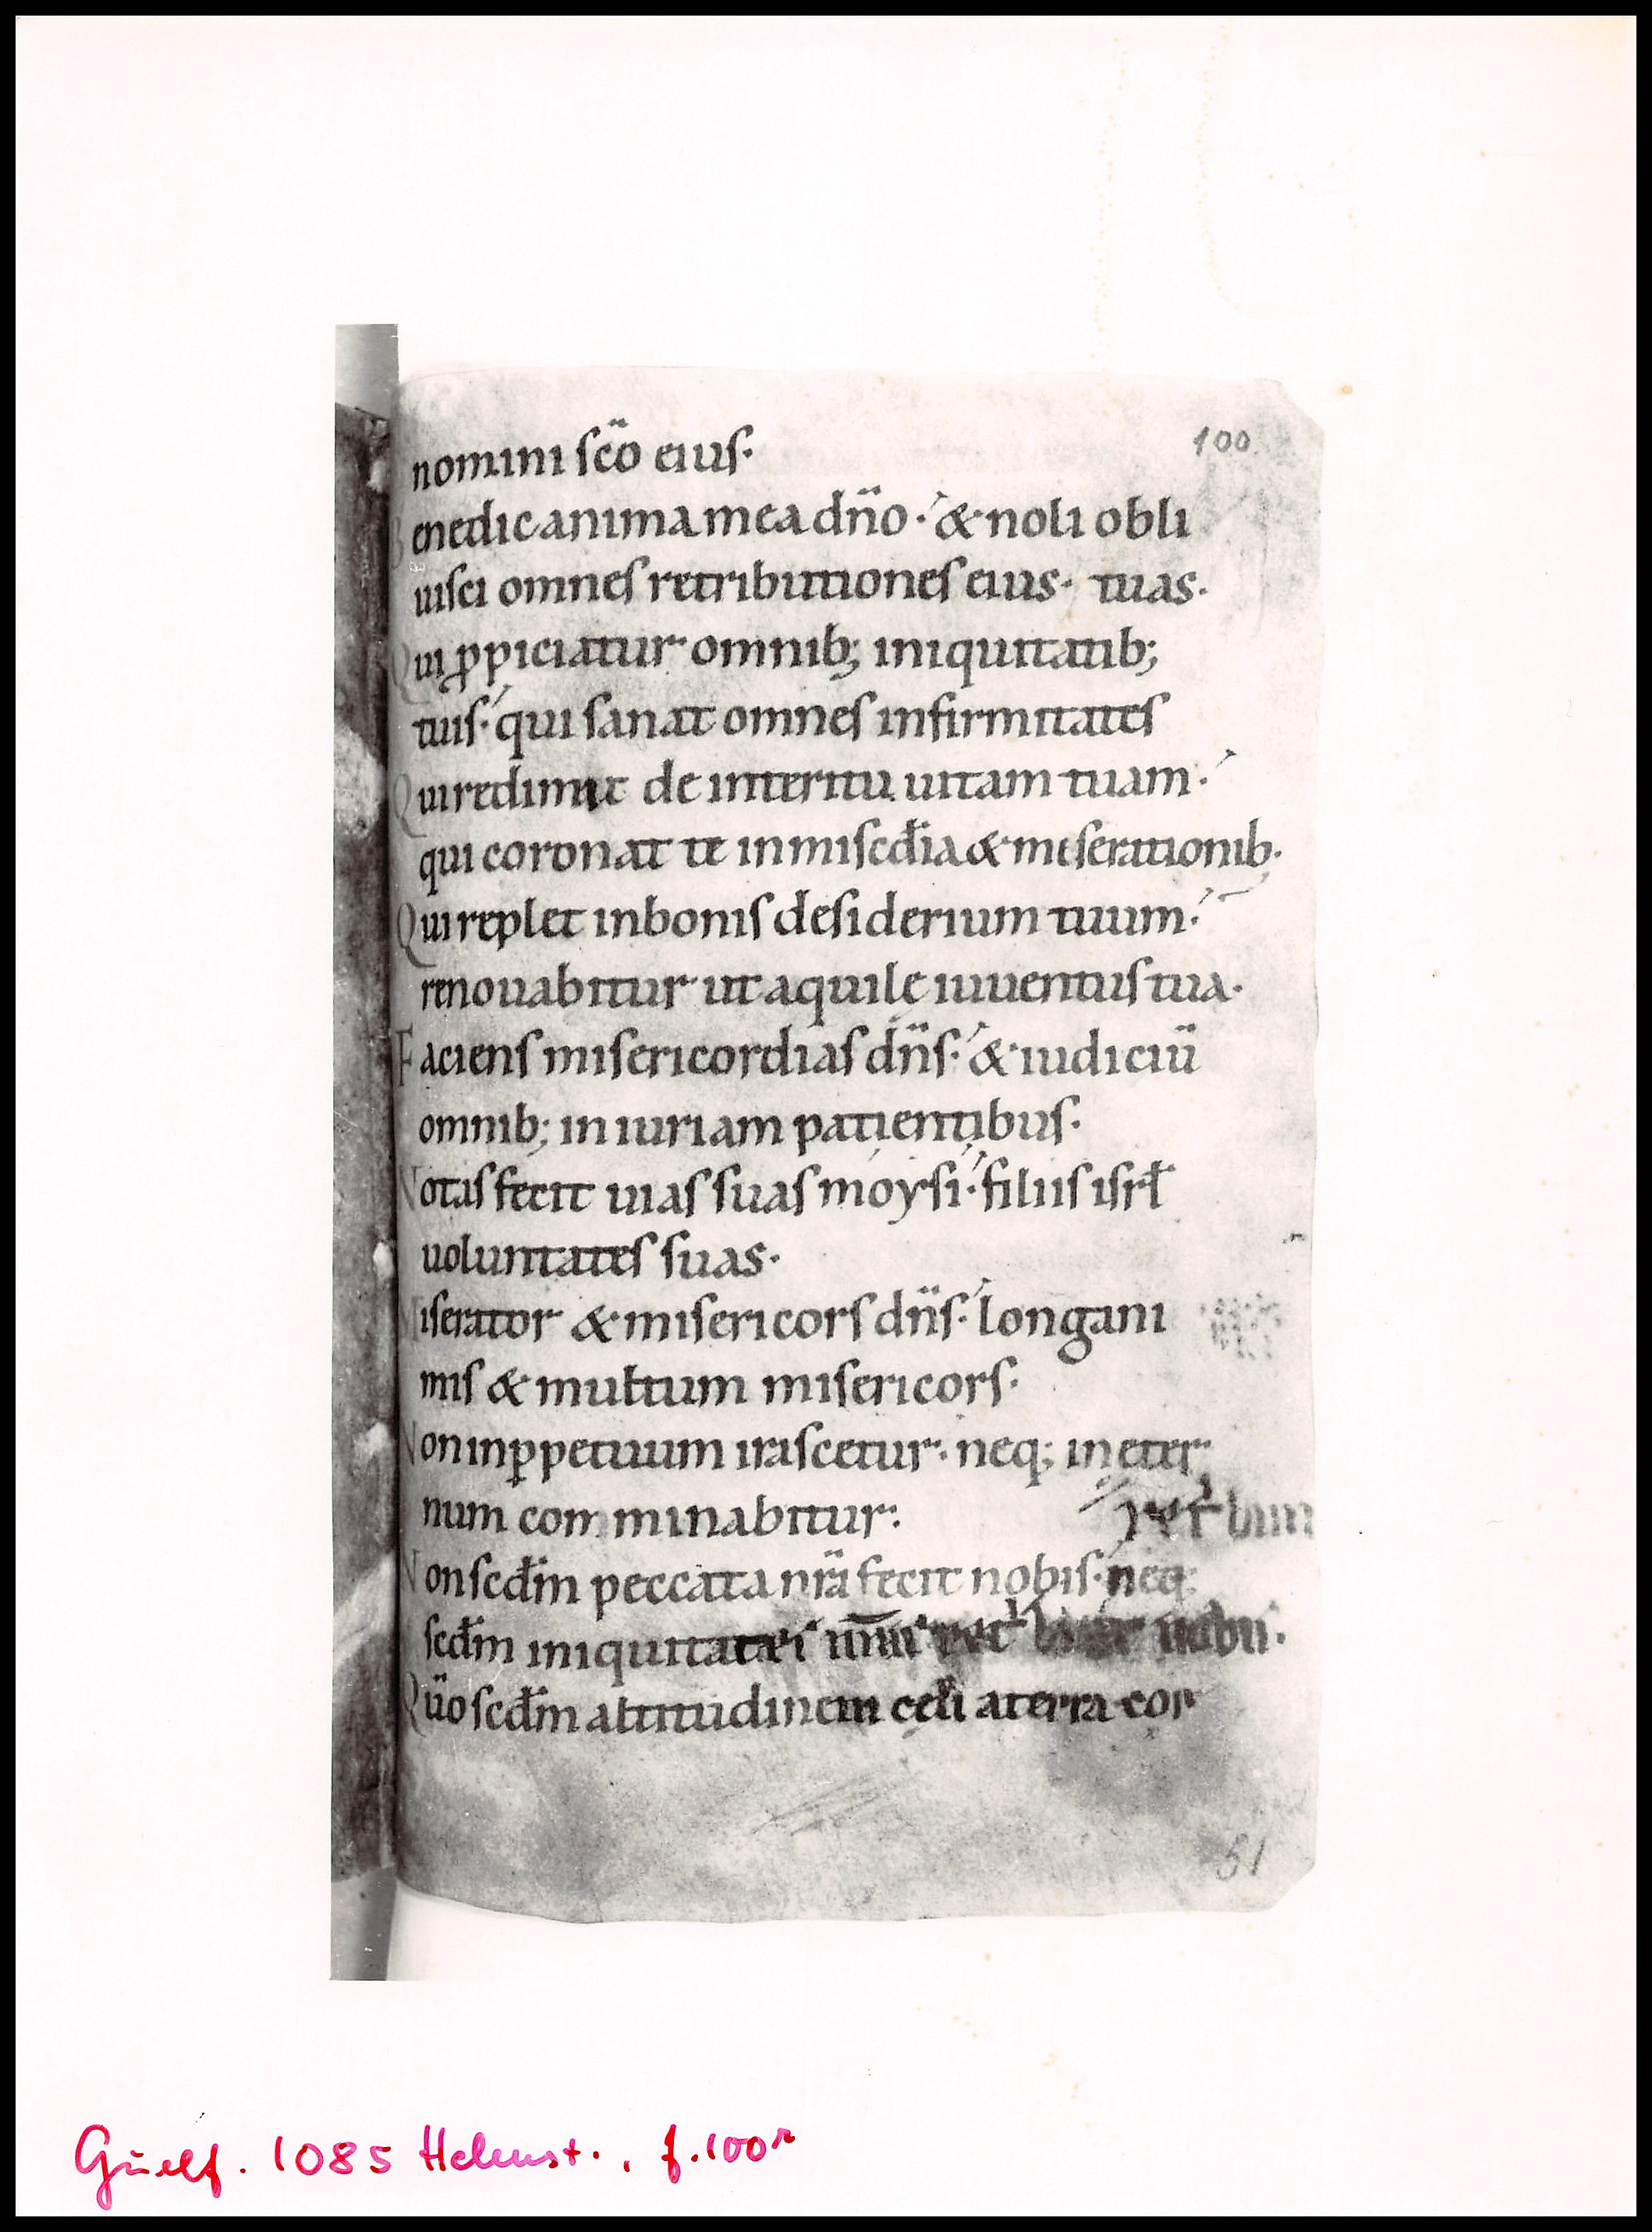 100
nomini sc̄o eius·
Benedic anima mea dn̄o· & noli obli
uisci omnes retributiones eius· tuas·
Qui ꝓpiciatur omnib; iniquitatib;
tuis· qui sanat omnes infirmitates
Qui redimit de interitu uitam tuam·
qui coronat te in miscd̄ia & miserationib·
Qui replet in bonis desiderium tuum·
renouabitur ut aquilę iuuentus tua·
Faciens misericordias dn̄s· & iudiciū
omnib; iniuriam patientibus·
Notas fecit uias suas moysi· filiis isrł
uoluntates suas·
Miserator & misericors dn̄s· longani
mis & multum misericors·
Non in ꝑpetuum irascetur· neq; in eter
num comminabitur·
Non scdm̄ peccata nr̄a fecit nobis· neq;
scdm̄ iniquitates nobis·
Qūo scdm̄ altitudinem cęli a terra cor
51
Guelf. 1085 Helmst., f. 100r